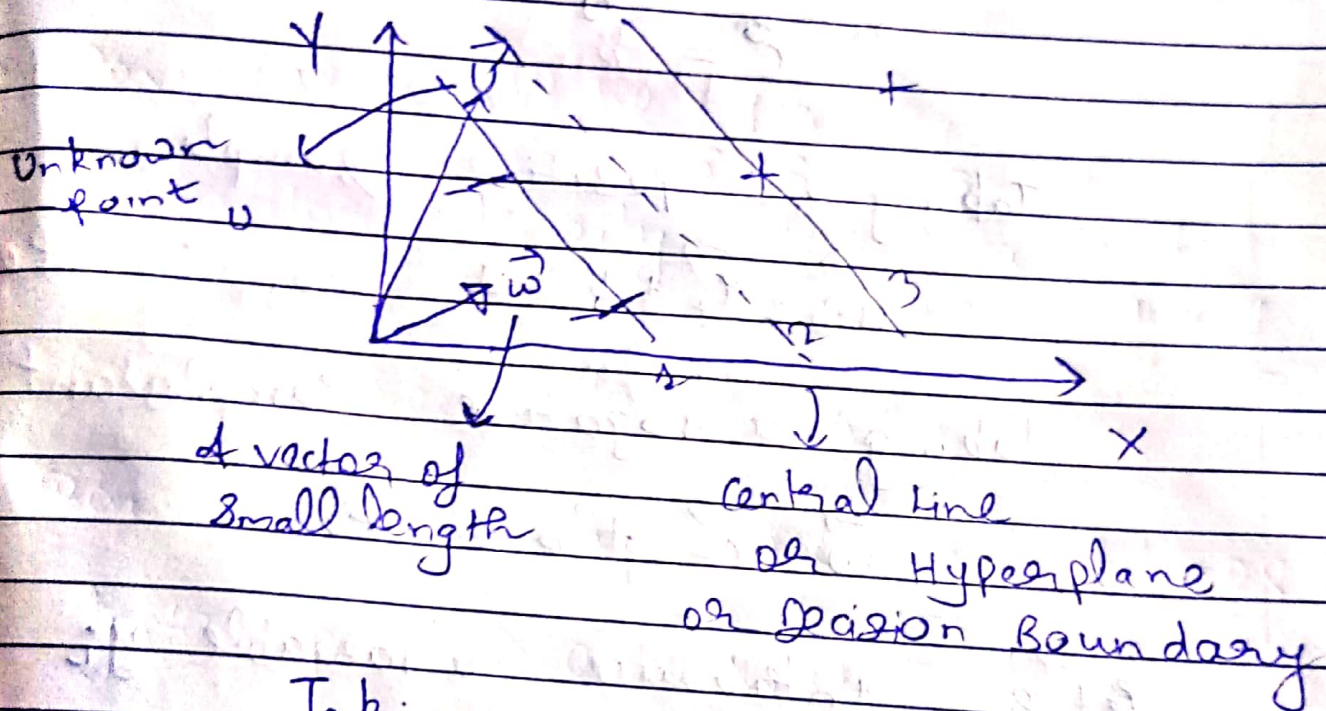 Y
U
Unknown
point u
w
3
2
1
X
A vector of
small length
central Line
or Hyperplane
or Decision Boundary